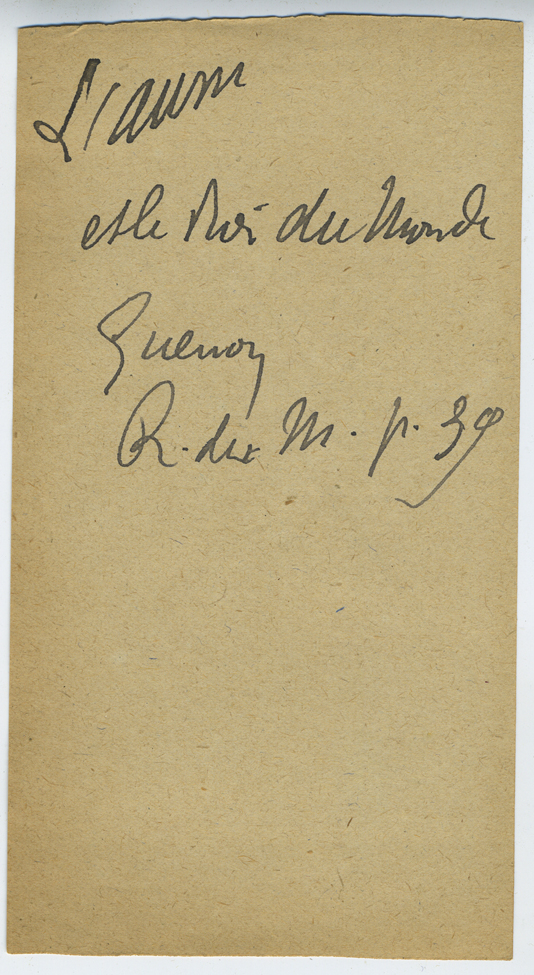 L'aum
et le Roi du Monde
Guenon
R. du M. p. 39